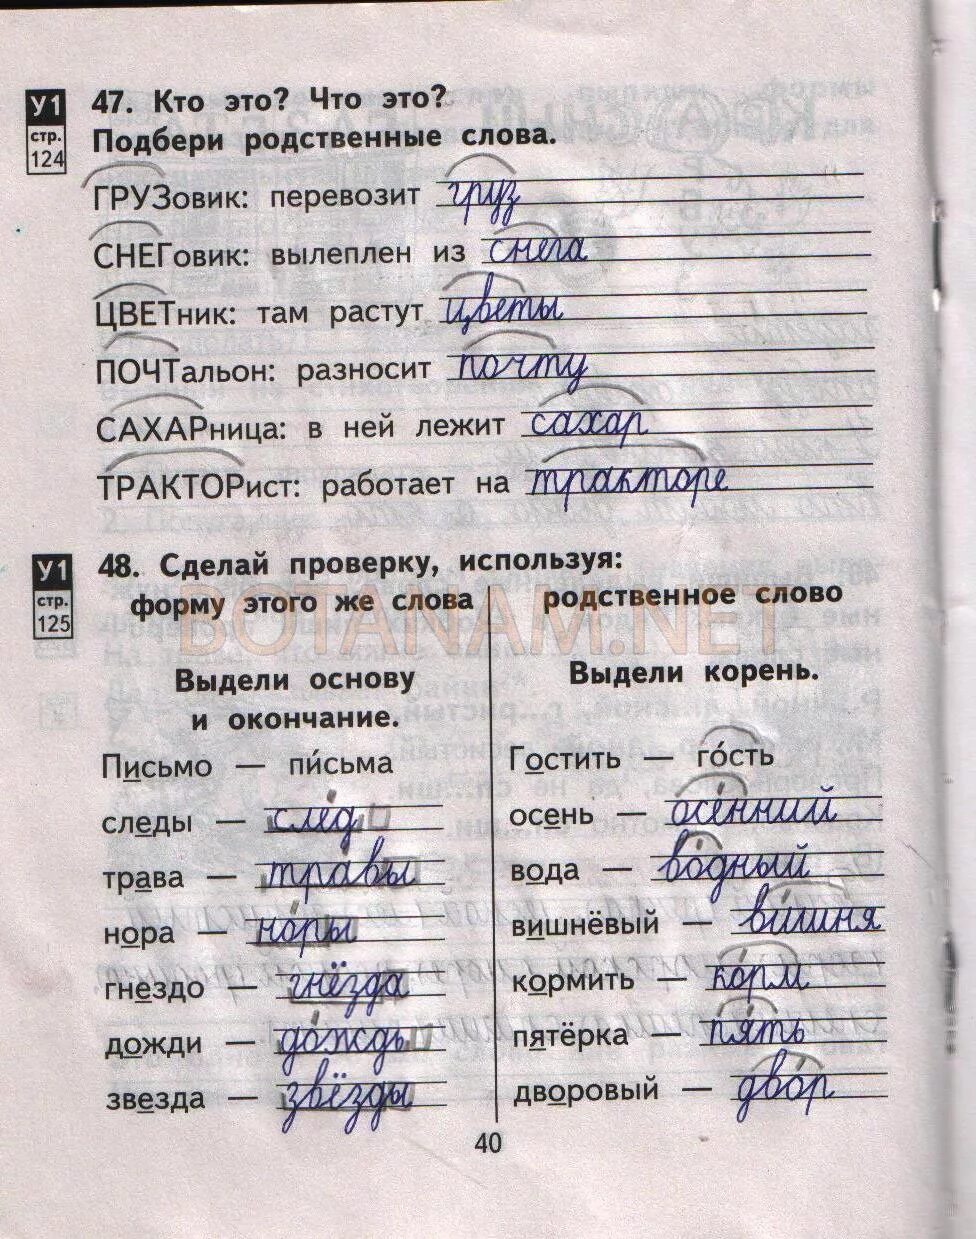 У1
стр.
124
47. Кто это? Что это?
Подбери родственные слова.
ГРУЗовик: перевозит груз
СНЕГовик: вылеплен из снега
ЦВЕТник: там растут цветы
ПОЧТальон: разносит почту
САХАРница: в ней лежит сахар
ТРАКТОРист: работает на тракторе
У1
стр.
125
48. Сделай проверку, используя:
форму этого же слова
родственное слово
BOTANAM.NET
Выдели основу
и окончание.
Письмо — пи́сьма
следы — след
трава — травы
нора — норы
гнездо — гнёзда
дожди — дождь
звезда — звёзды
Выдели корень.
Гостить — го́сть
осень — осенний
вода — водный
вишнёвый — вишня
кормить — корм
пятёрка — пять
дворовый — двор
40